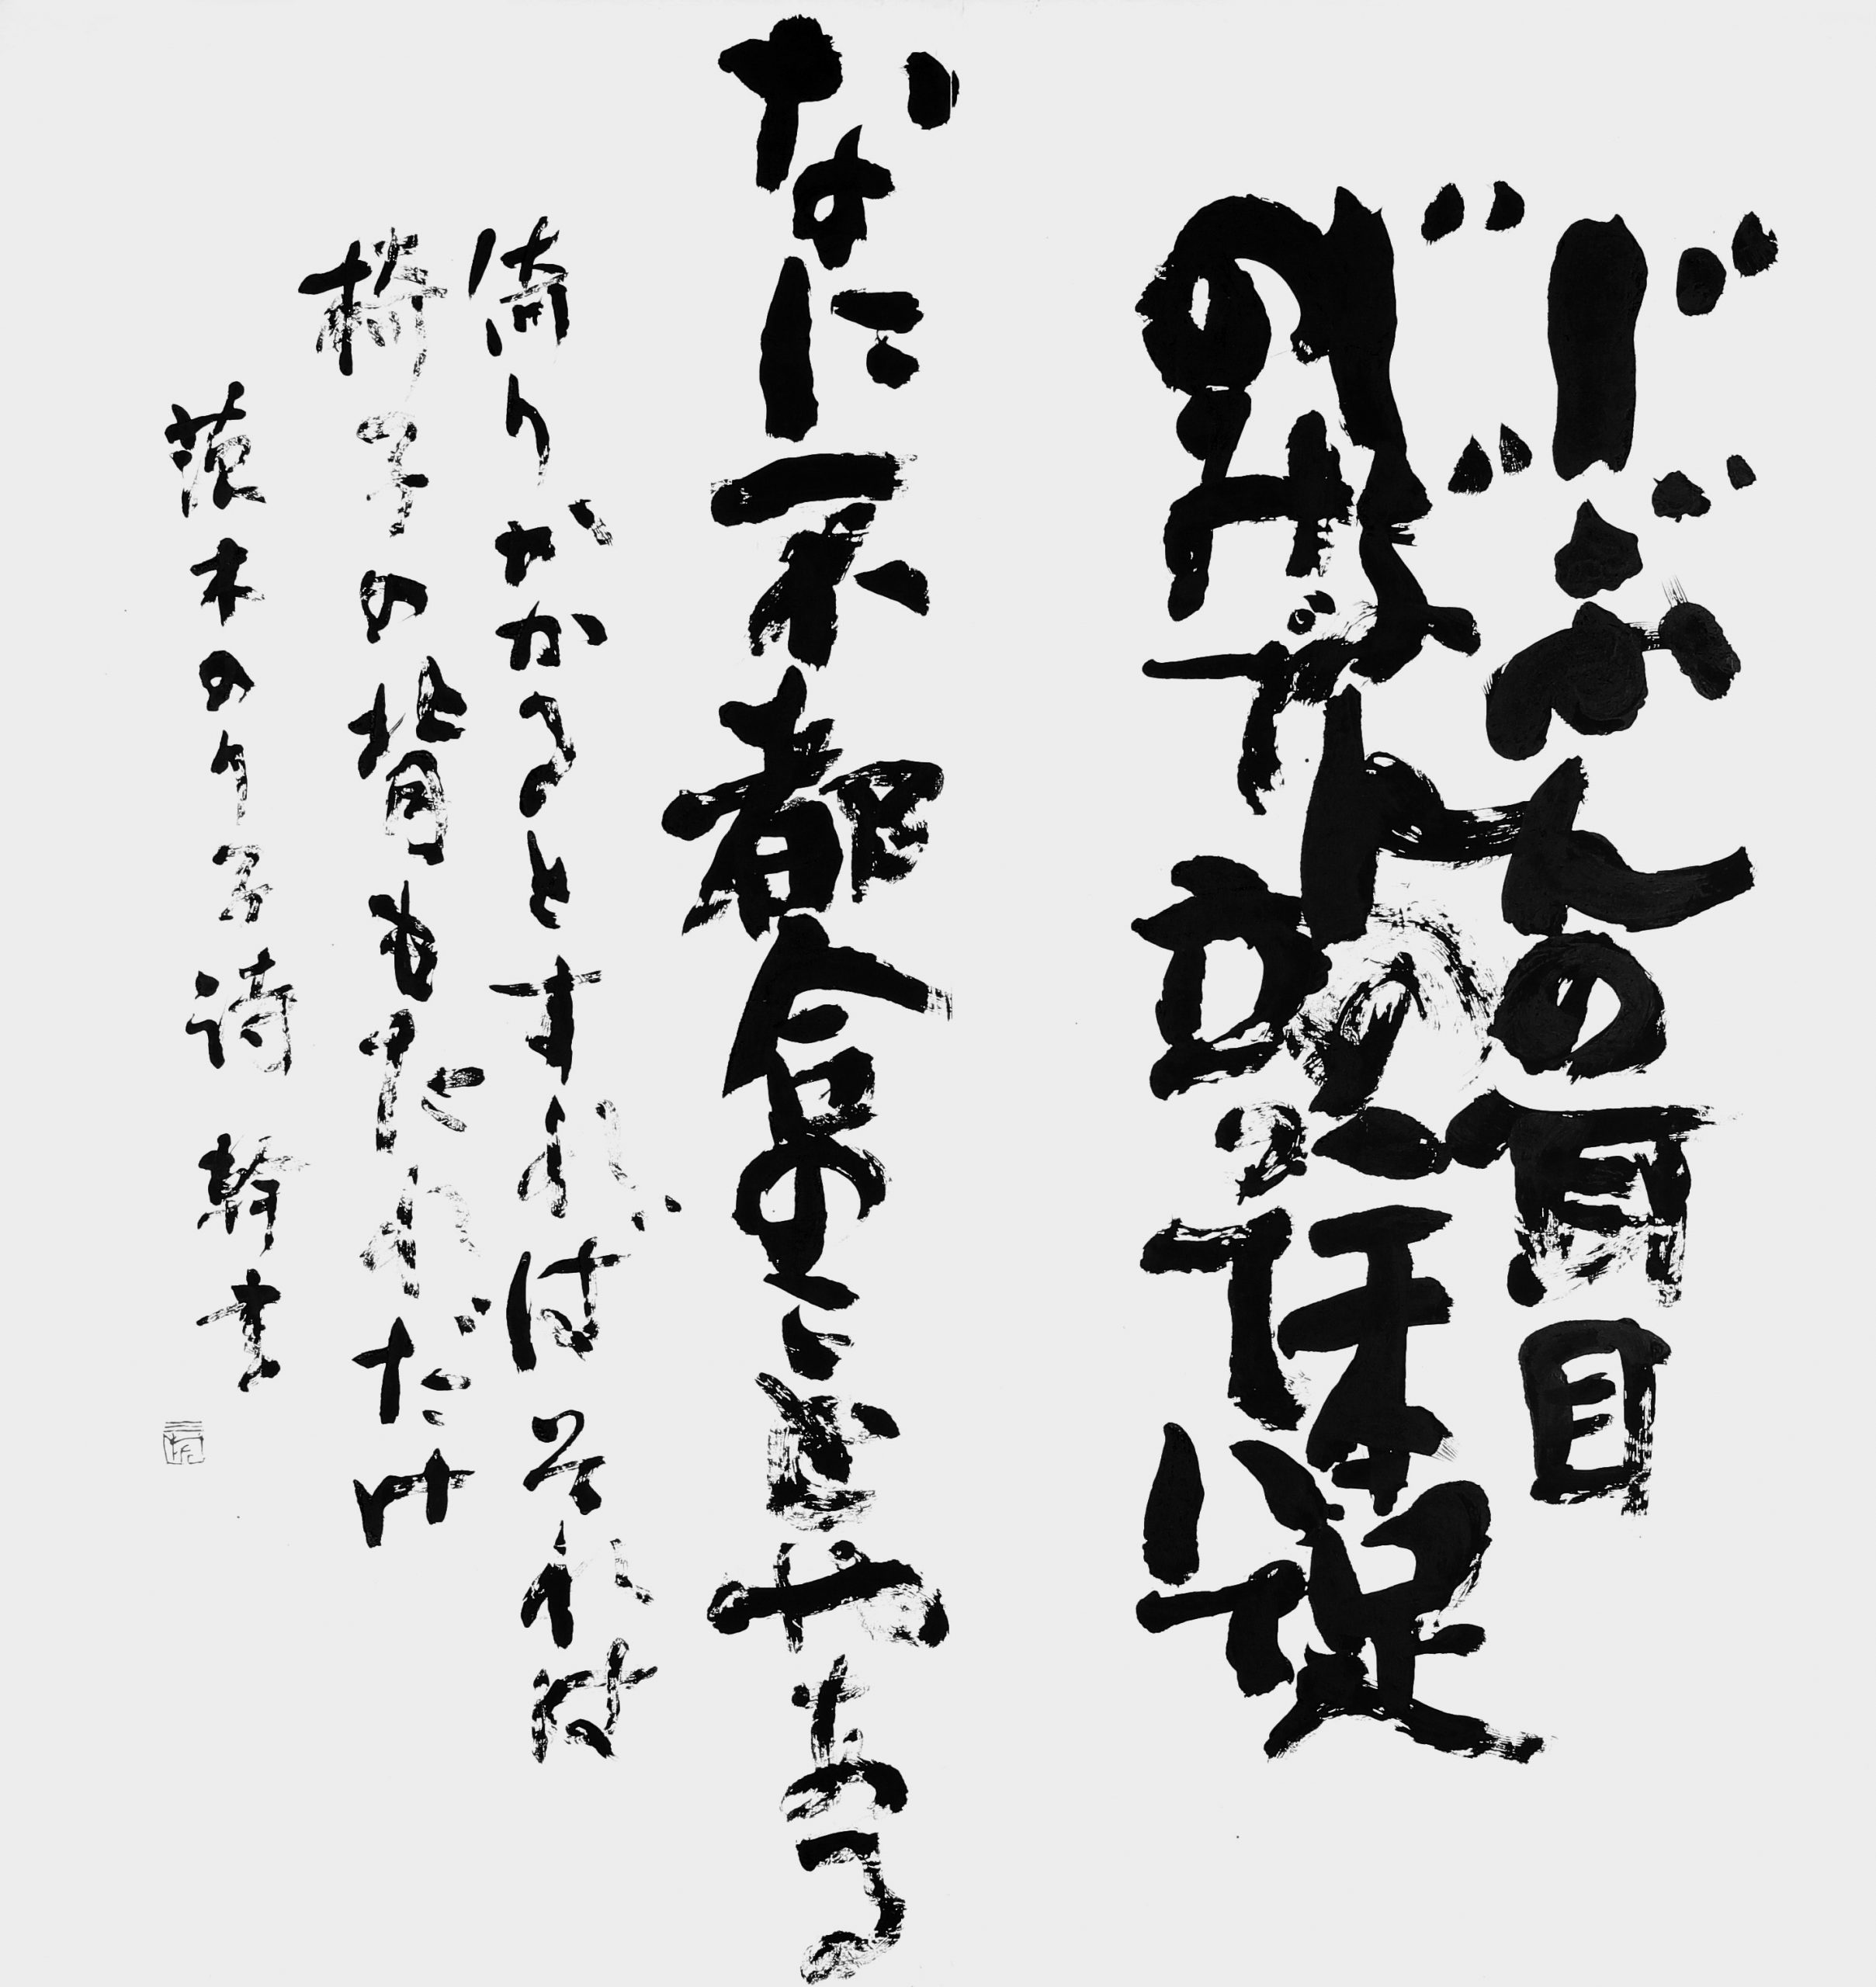 じぶんの耳目
じぶんの二本足
のみで立っていて
なに不都合のことやある
倚りかかるとすればそれは
椅子の背もたれだけ
茨木のり子詩 幹書